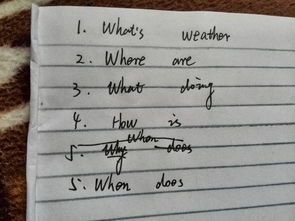 1. What's weather
2. Where are
3. What doing
4. How is
When
5. Why does
5. When does